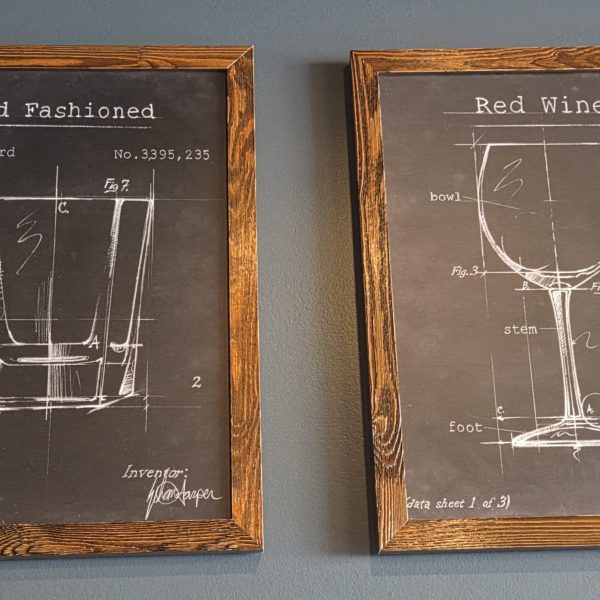 d Fashioned
rd
No.3,395,235
Fig 7.
C.
A
2
Inventor:
Red Wine
bowl
Fig.3
B
stem
C.
A.
foot
(data sheet 1 of 3)